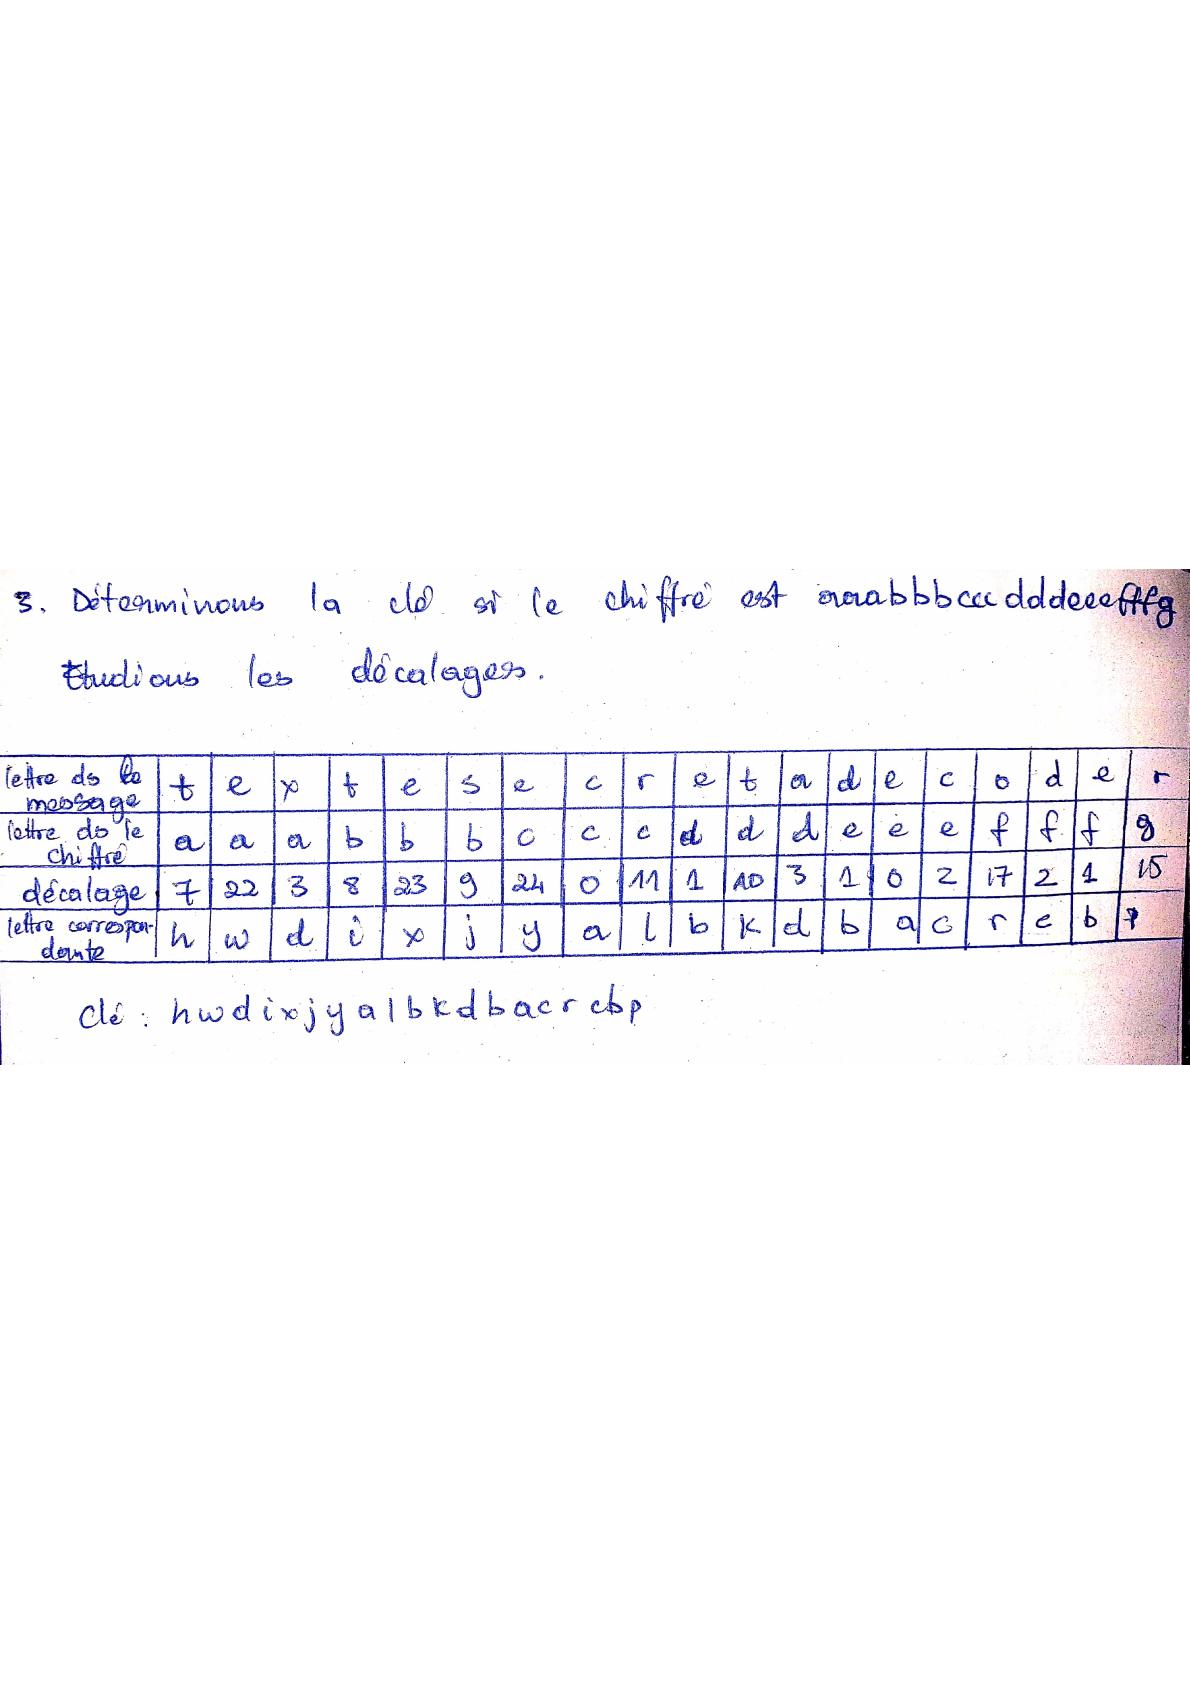 3. Déterminons la clé si le chiffré est aaabbbcccdddeeefffg
Etudions les décalages.
lettre ds le message t e x t e s e c r e t a d e c o d e r
lettre ds le chiffré a a a b b b c c c d d d e e e f f f g
décalage 7 22 3 8 23 9 24 0 11 1 10 3 1 0 2 17 2 1 15
lettre correspon-dante h w d i x j y a l b k d b a c r c b p
Clé : hwdixjyalbkdbacrcbp